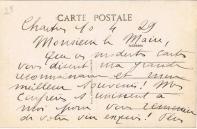 CARTE POSTALE
Chartres 10 4 29
Monsieur le Maire,
Que ces modestes cartes
vous disent ma grande
reconnaissance et mon
meilleur souvenir! Mes
confrères s'unissent à
moi pour vous remercier
de votre vin exquis!